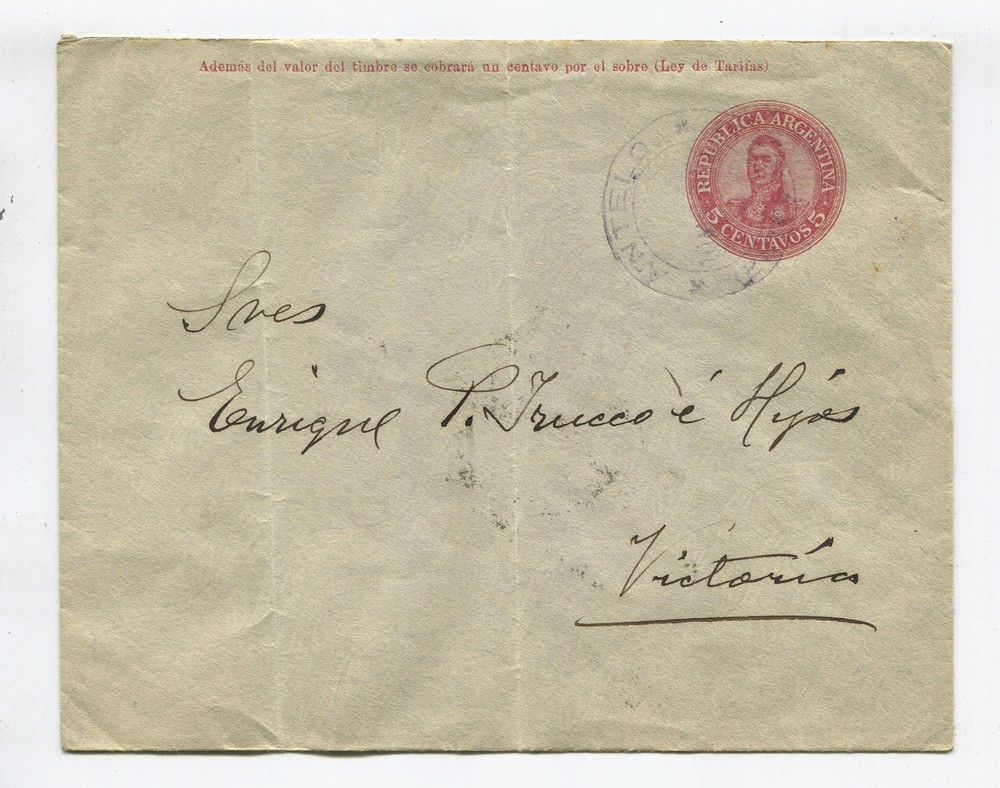 Además del valor del timbre se cobrará un centavo por el sobre (Ley de Tarifas)
REPUBLICA ARGENTINA
5 CENTAVOS 5
ANTELO
Sres
Enrique P. Trucco é Hijos
Victoria